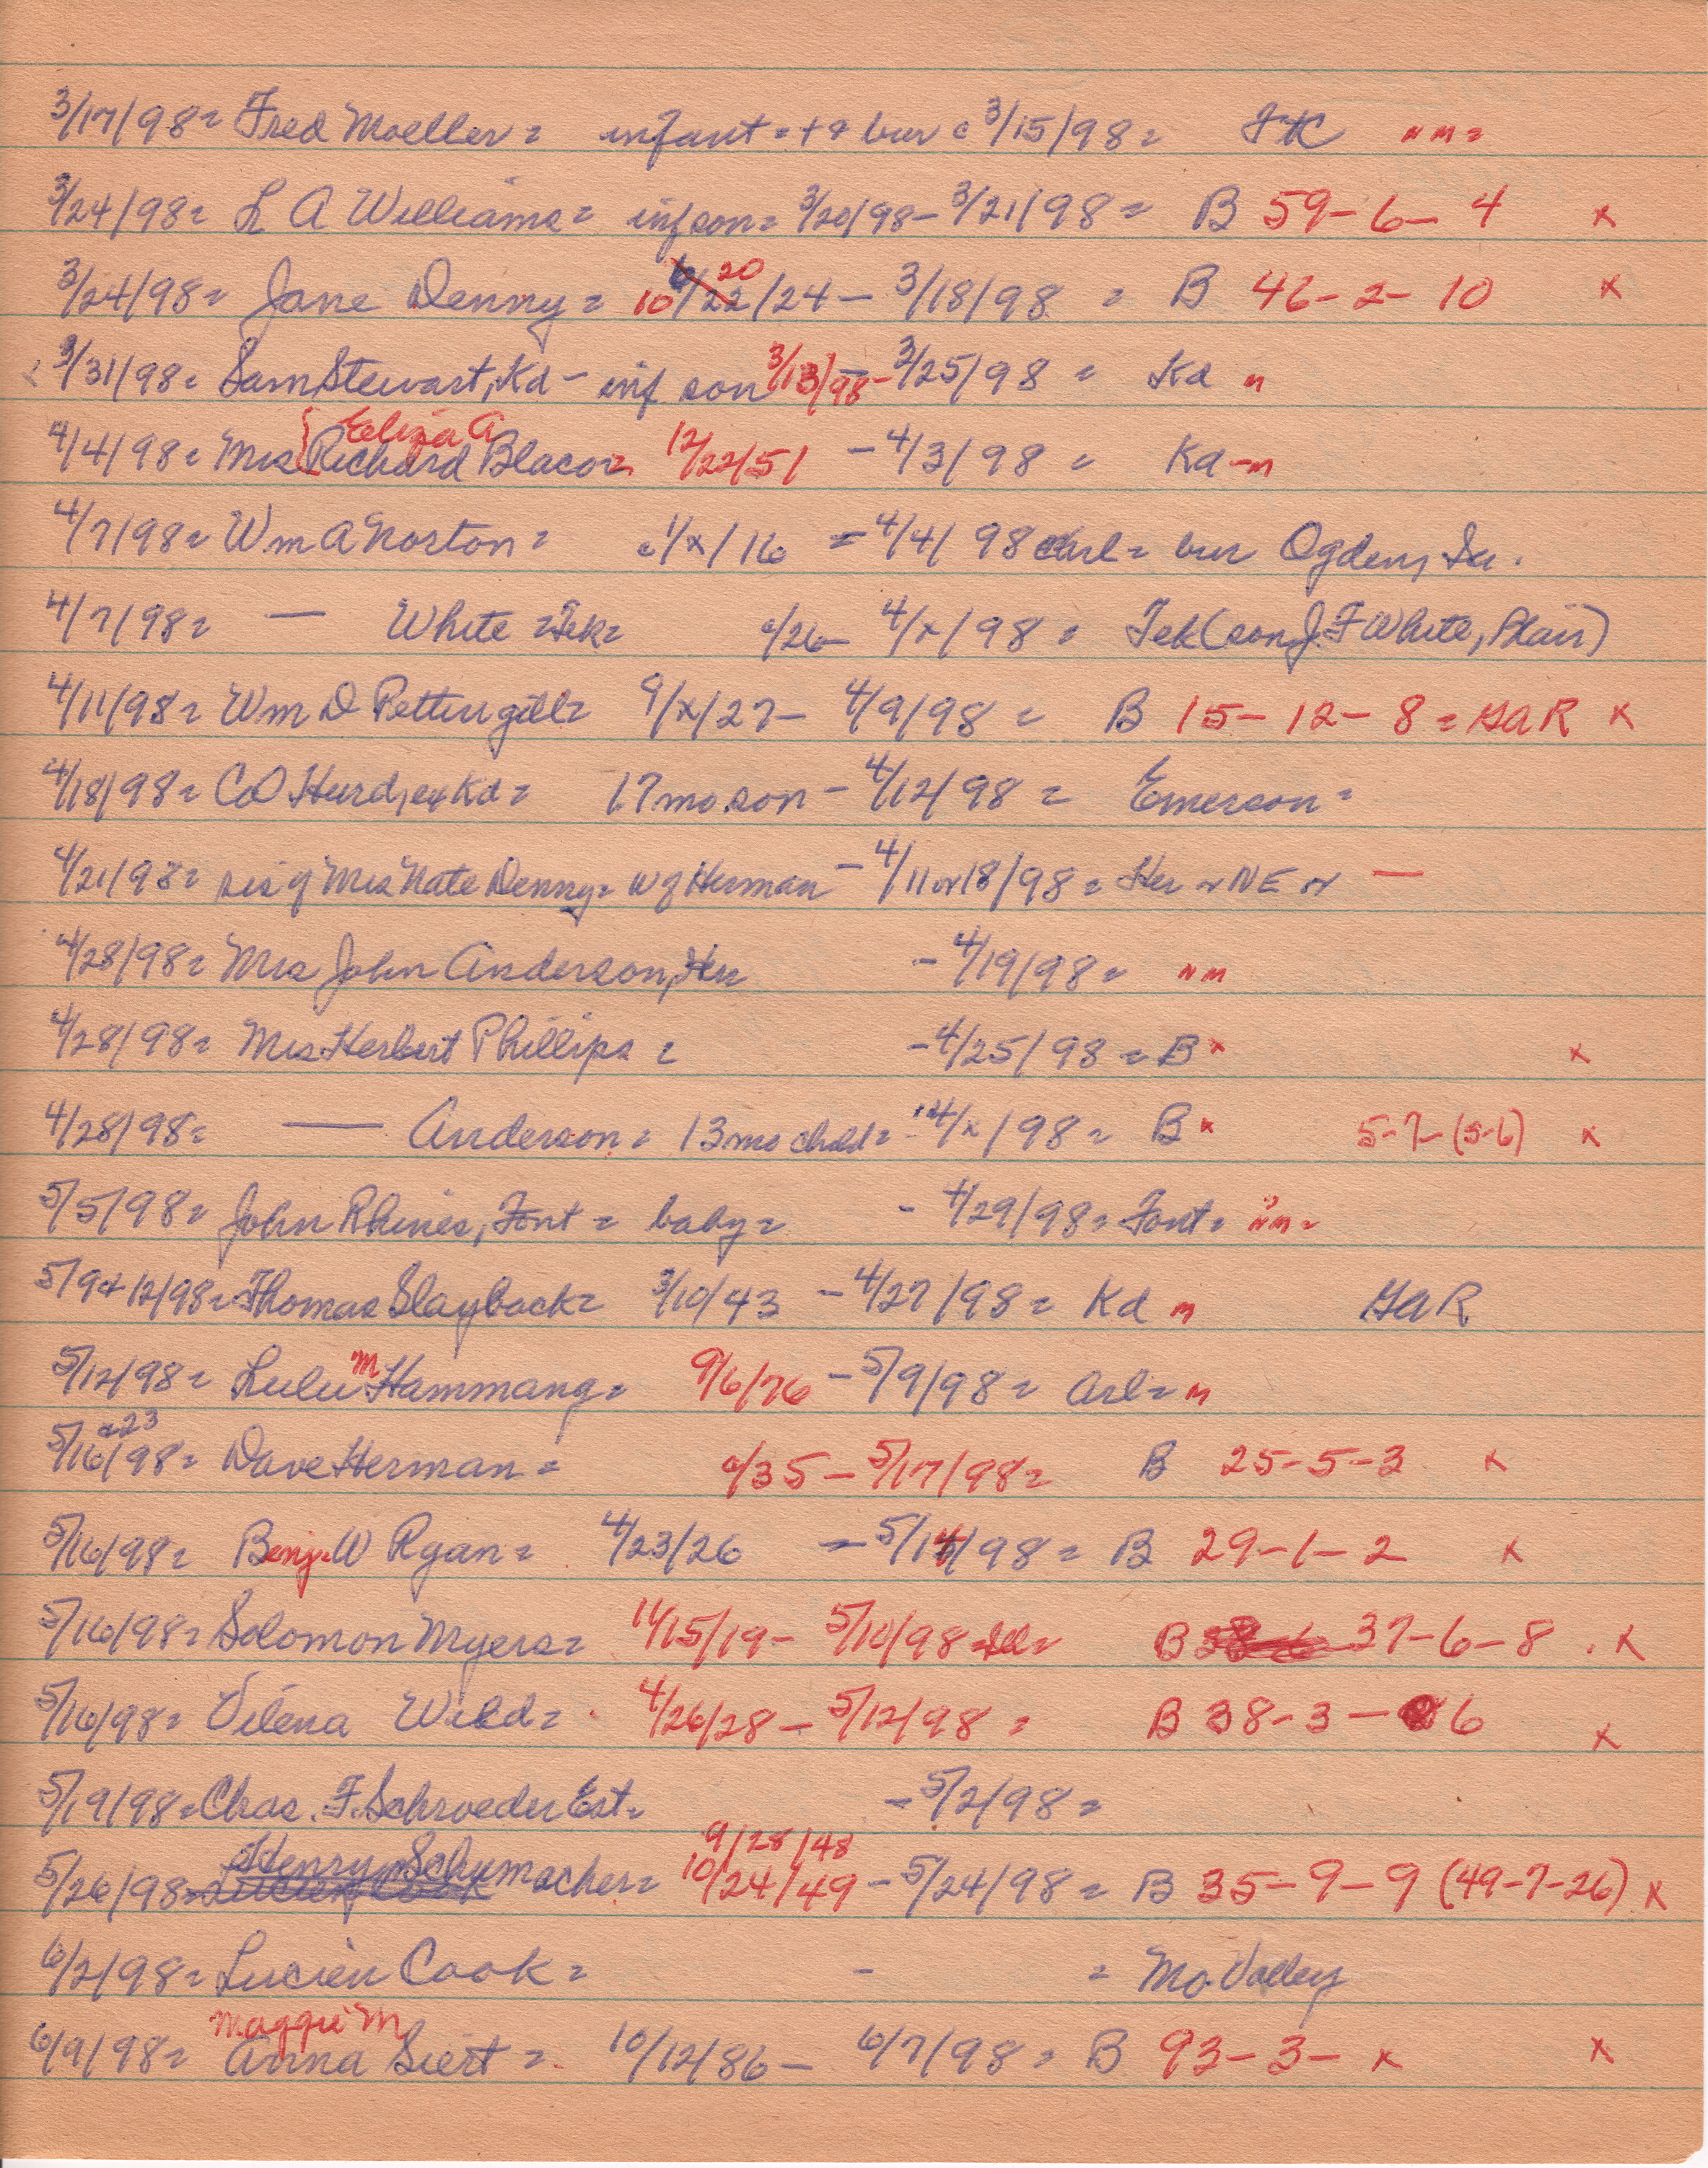 3/17/98= Fred Moeller= infant=++ bur c 3/15/98= nm=
3/24/98= L A Williams= inf son= 3/20/98- 3/21/98= B 59-6-4 x
3/24/98= Jane Denny= 10/20/24- 3/18/98= B 46-2-10 x
3/31/98= Sam Stewart, Kd- inf son 3/13/98- 3/25/98= Kd m
Eliza A
4/4/98= Mrs (Richard Blaco= 12/22/51 -4/3/98= Kd-m
4/7/98= Wm A Norton= c 1/x/16 =4/4/98 Arl= bur Ogden, Ia.
4/7/98= — White=Tek= c/26- 4/x/98= Tek (son J. F White, Plair)
4/11/98= Wm D Pettengill= 9/x/27- 4/9/98= B 15-12-8= GAR x
4/18/98= C O Hurd, ex Kd= 17 mo. son- 4/12/98= Emerson=
4/21/98= sis of Mrs Nate Denny= w of Herman- 4/11 or 18/98= Her or NE or —
4/28/98= Mrs John Anderson, Her -4/19/98= nm
4/28/98= Mrs Herbert Phillips= -4/25/98=B x x
4/28/98= — Anderson= 13 mo child= -4/x/98= B x 5-7-(5-6) x
5/5/98= John Rhines, Font= baby= -4/29/98= Font= nm=
5/9+12/98= Thomas Slayback= 3/10/43 -4/27/98= Kd m GAR
5/12/98= Lulu M Hammang= 9/6/76 -5/9/98= Arl= m
5/16+23/98= Dave Herman= c/35- 5/17/98= B 25-5-3 x
5/16/98= Benj. W Ryan= 4/23/26 -5/14/98= B 29-1-2 x
5/16/98= Solomon Myers= 11/15/19- 5/10/98= B 37-6-8 x
5/16/98= Vilena Wild= 4/26/28- 5/12/98= B 38-3-6 x
5/19/98= Chas. F. Schroeder Est= -5/2/98=
9/28/48
5/26/98= Henry Schumacher= 10/24/49 -5/24/98= B 35-9-9 (49-7-26) x
6/2/98= Lucien Cook= - = Mo Valley
Maggie M
6/9/98= Anna Siert= 10/12/86- 6/7/98= B 93-3-x x